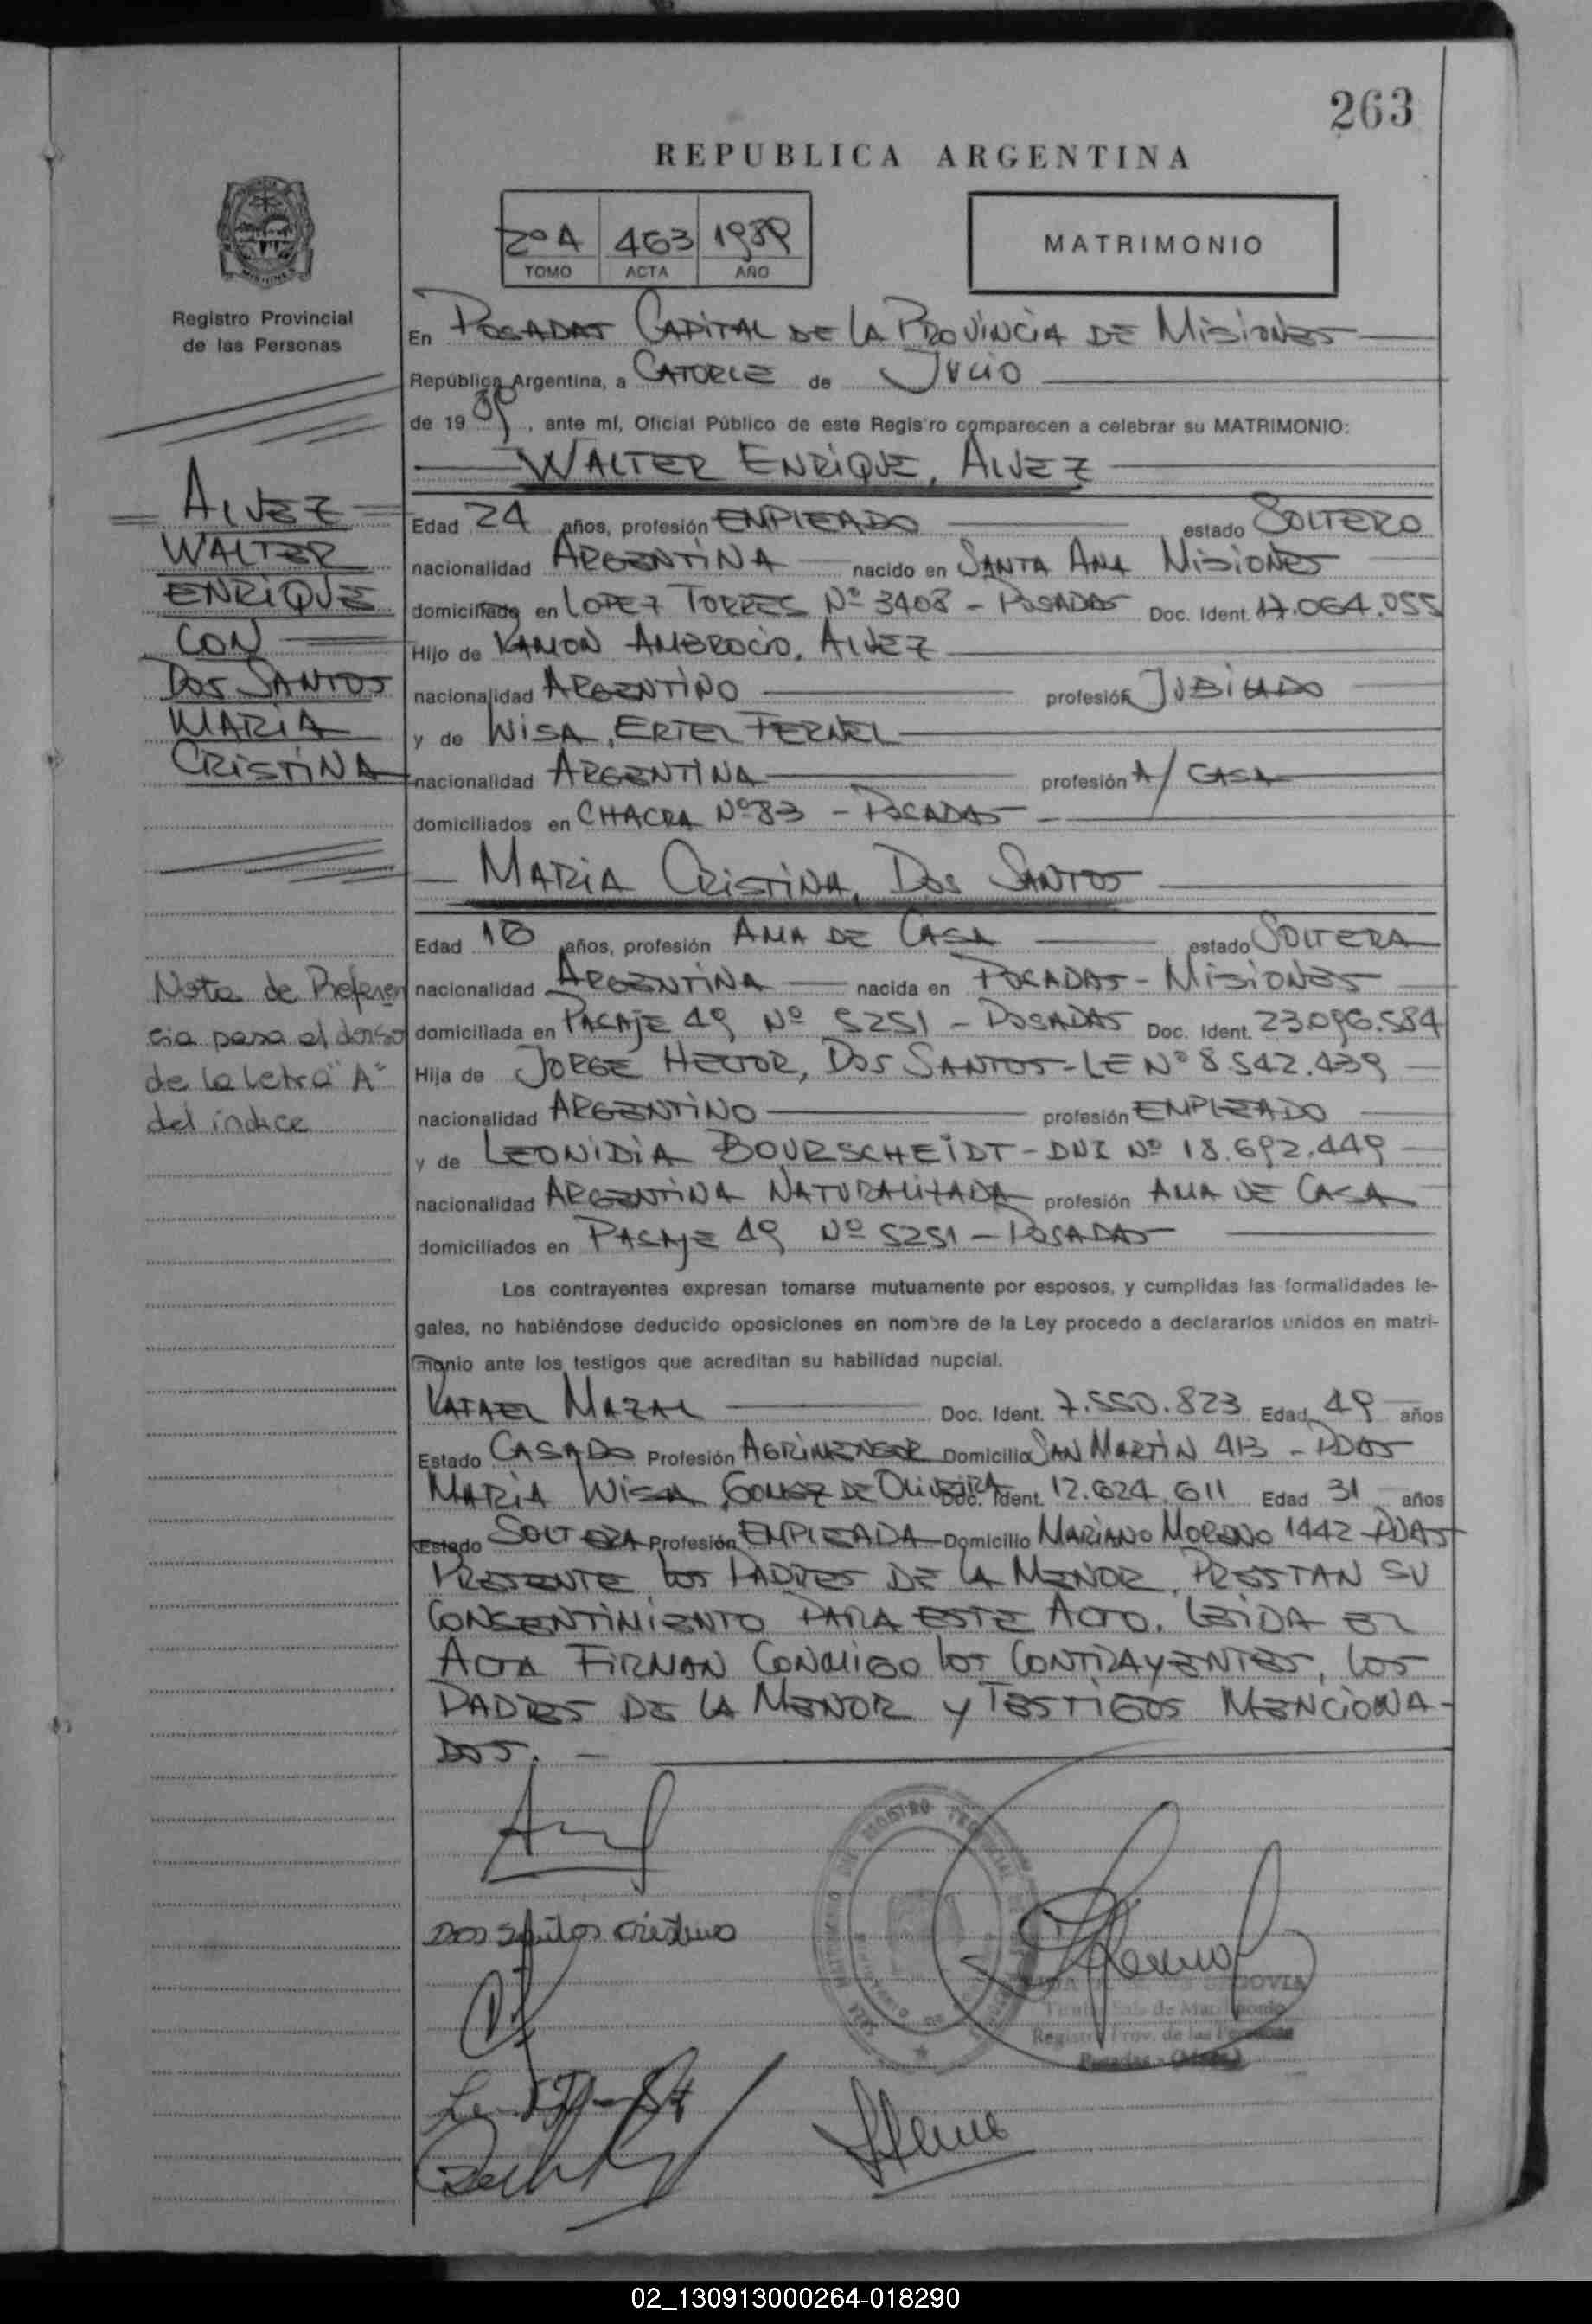 263
REPUBLICA ARGENTINA
2º A 463 1989
TOMO ACTA AÑO
MATRIMONIO
Registro Provincial
de las Personas
En POSADAS CAPITAL DE LA PROVINCIA DE MISIONES
República Argentina, a CATORCE de JULIO
de 19 89, ante mí, Oficial Público de este Registro comparecen a celebrar su MATRIMONIO:
WALTER ENRIQUE, ALVEZ
Edad 24 años, profesión EMPLEADO estado SOLTERO
nacionalidad ARGENTINA nacido en SANTA ANA MISIONES
domiciliado en LOPEZ TORRES Nº 3408 - POSADAS Doc. Ident. 17.064.055
Hijo de RAMON AMBROCIO, ALVEZ
nacionalidad ARGENTINO profesión JUBILADO
y de LUISA, ERTEL FERNEL
nacionalidad ARGENTINA profesión A/ CASA
domiciliados en CHACRA Nº 83 - POSADAS
MARIA CRISTINA, DOS SANTOS
Edad 16 años, profesión AMA DE CASA estado SOLTERA
nacionalidad ARGENTINA nacida en POSADAS - MISIONES
domiciliada en PASAJE 49 Nº 5251 - POSADAS Doc. Ident. 23.096.584
Hija de JORGE HECTOR, DOS SANTOS - LE Nº 8.542.439
nacionalidad ARGENTINO profesión EMPLEADO
y de LEONIDIA BOURSCHEIDT - DNI Nº 18.692.449
nacionalidad ARGENTINA NATURALIZADA profesión AMA DE CASA
domiciliados en PASAJE 49 Nº 5251 - POSADAS
Los contrayentes expresan tomarse mutuamente por esposos, y cumplidas las formalidades le-
gales, no habiéndose deducido oposiciones en nombre de la Ley procedo a declararlos unidos en matri-
monio ante los testigos que acreditan su habilidad nupcial.
RAFAEL MAZAL Doc. Ident. 7.550.823 Edad 49 años
Estado CASADO Profesión AGRIMENSOR Domicilio SAN MARTIN 413 - PDAS
MARIA LUISA GOMEZ DE OLIVEIRA Doc. Ident. 12.624.611 Edad 31 años
Estado SOLTERA Profesión EMPLEADA Domicilio MARIANO MORENO 1442 - PDAS
PRESENTE LOS PADRES DE LA MENOR, PRESTAN SU
CONSENTIMIENTO PARA ESTE ACTO. LEIDA EL
ACTA FIRMAN CONMIGO LOS CONTRAYENTES, LOS
PADRES DE LA MENOR Y TESTIGOS MENCIONA-
DOS. -
ALVEZ
WALTER
ENRIQUE
CON
DOS SANTOS
MARIA
CRISTINA
Nota de Referen
cia para el dorso
de la letra "A"
del indice
Dos Santos Cristina
SEGOVIA
Titular Sala de Matrimonio
Registro Prov. de las Personas
Posadas - (Mnes.)
02_130913000264-018290